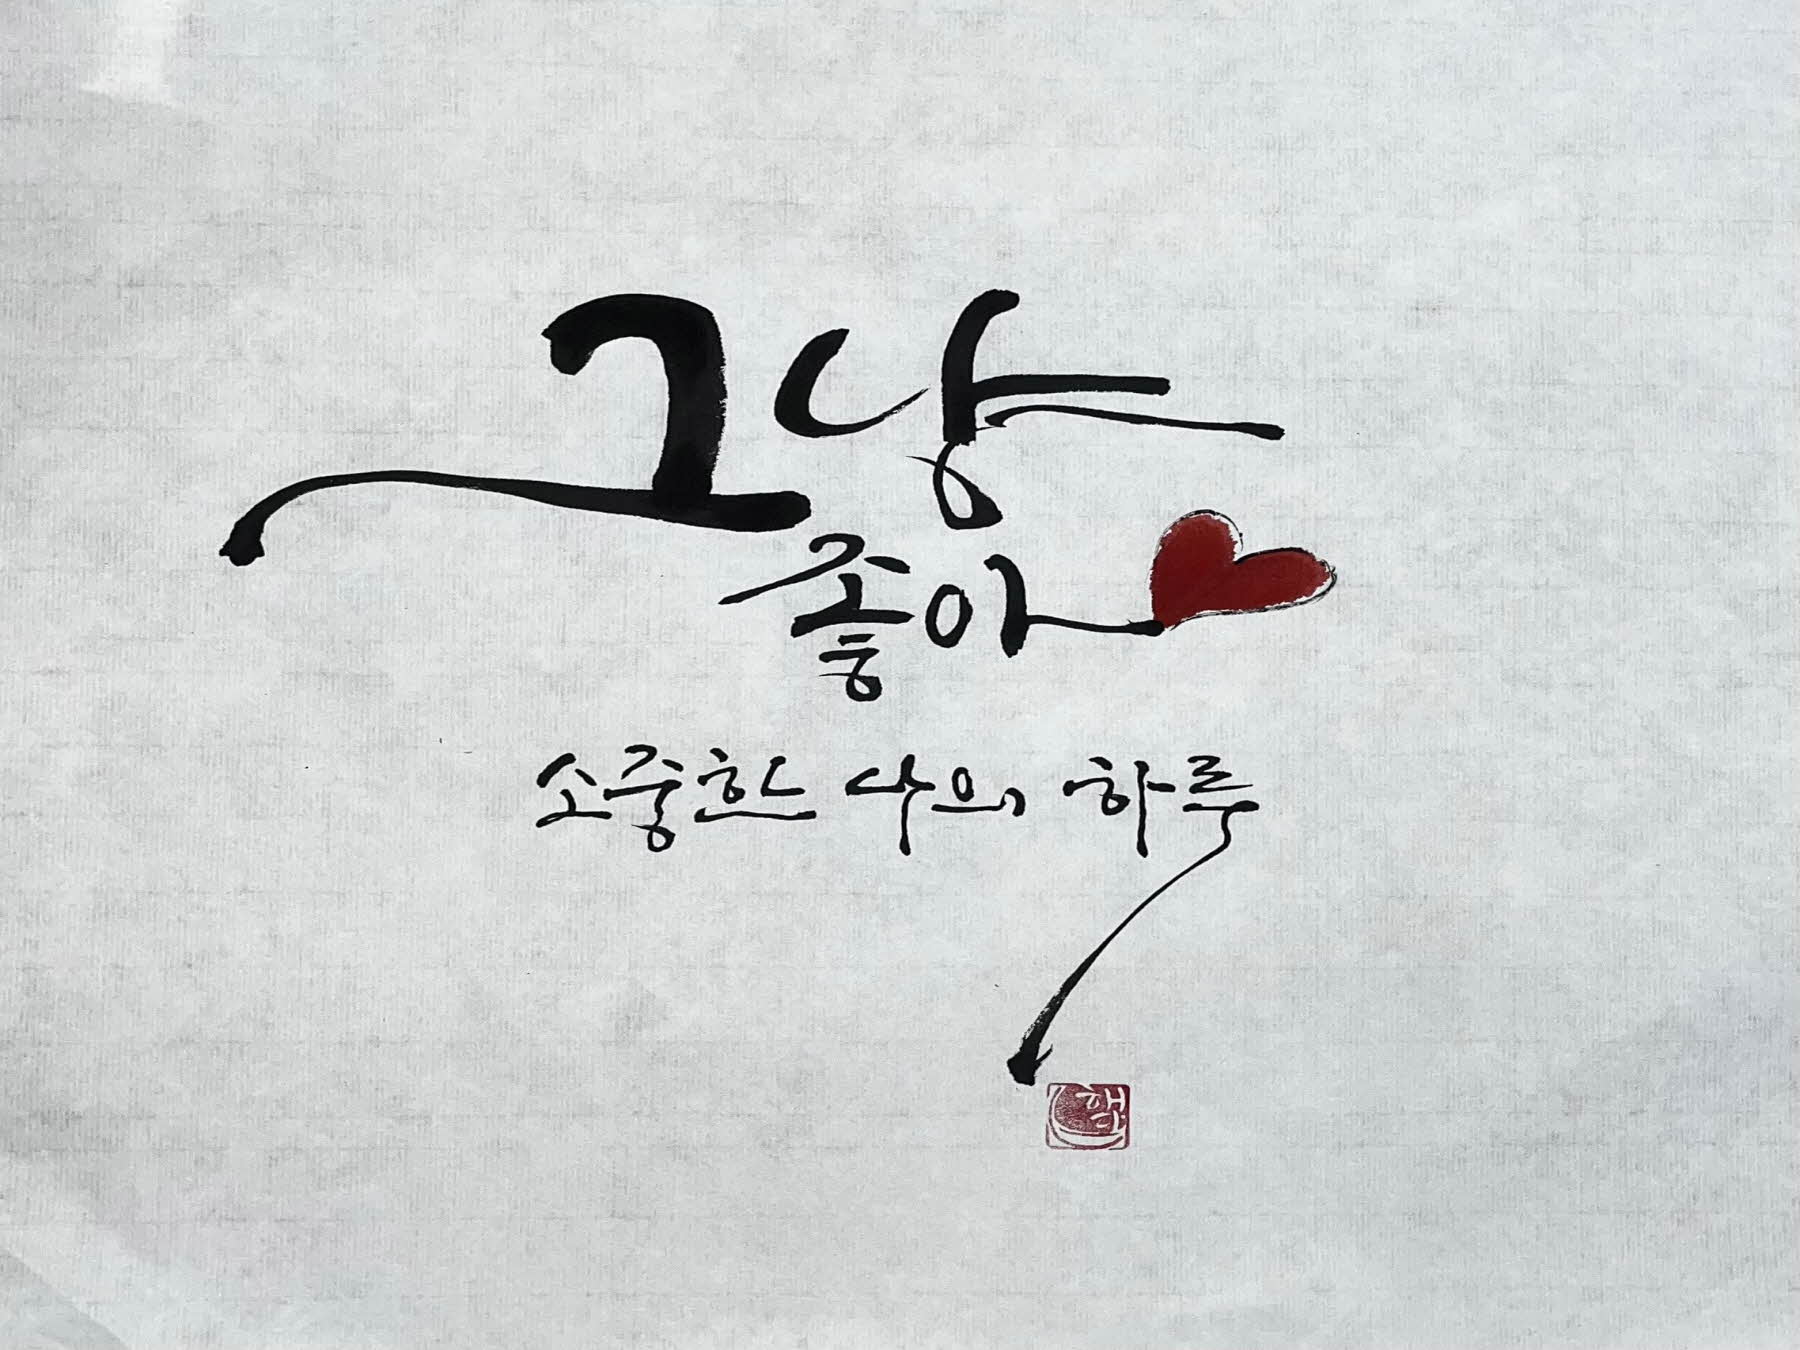 그냥
좋아
소중한 나의 하루